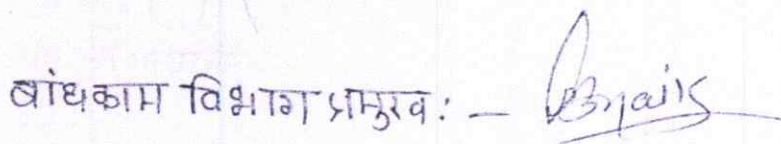 बांधकाम विभाग प्रमुख: -